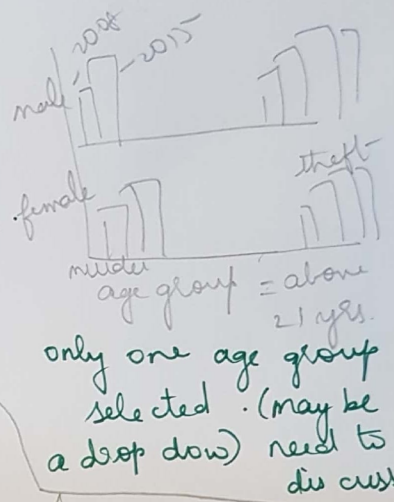 2008
2015
male
female
theft
murder
age group = above
21 yrs.
only one age group
selected. (may be
a drop dow) need to
discuss